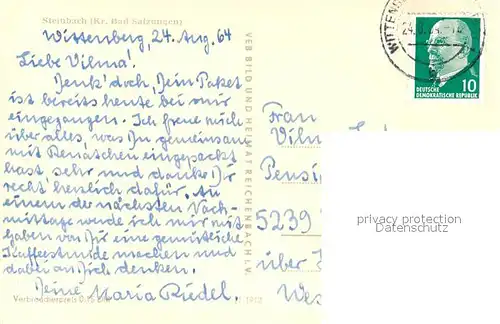 Steinbach (Kr. Bad Salzungen)
Wittenberg, 24. Aug. 64
Liebe Vilma!
Denk' doch, Dein Paket
ist bereits heute bei mir
eingegangen. Ich freue mich
über alles, was Du gemeinsam
mit Renatchen eingepackt
hast sehr und danke Dir
recht herzlich dafür. An
einem der nächsten Nach-
mittage werde ich mir mit
gaben von Dir eine gemütliche
Kaffeestunde machen und
dabei an Dich denken.
Deine
Maria Riedel.
Verbraucherpreis 0,15 DM
VEB BILD UND HEIMAT REICHENBACH I. V.
WITTENB
24.8.64
DEUTSCHE
DEMOKRATISCHE REPUBLIK
10
Frau
Vilm
Pensi
5239
über
Wes
privacy protection
Datenschutz